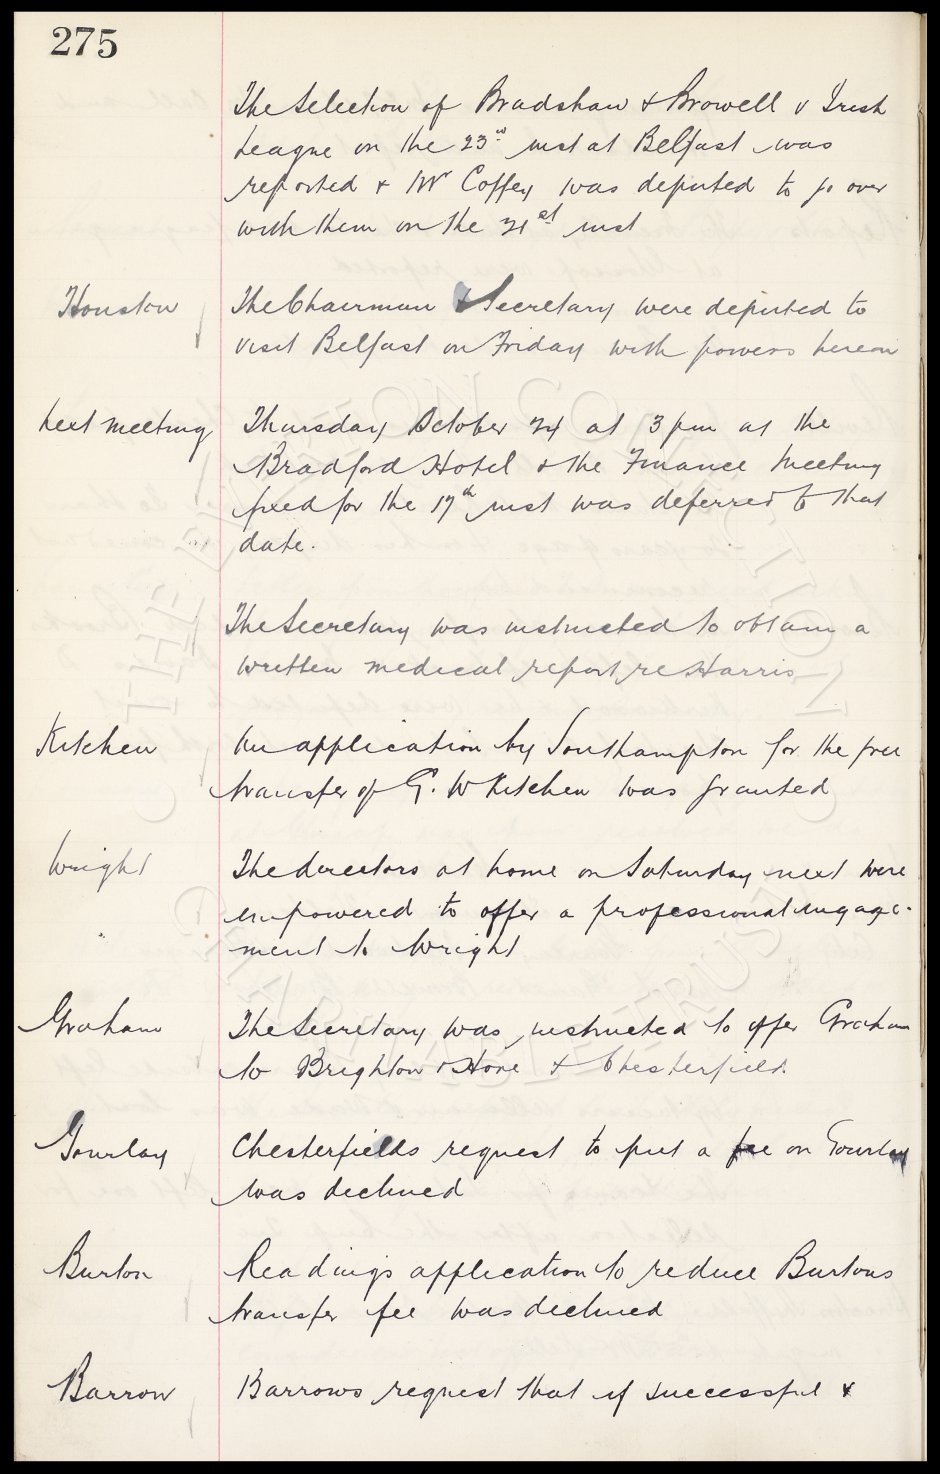 275
The Selection of Bradshaw & Browell v Irish
League on the 23rd inst at Belfast was
reported & Mr Coffey was deputed to go over
with them on the 21st inst
Houston
The Chairman & Secretary were deputed to
visit Belfast on Friday with powers hereon
Next meeting
Thursday October 24 at 3 pm at the
Bradford Hotel & the Finance Meeting
fixed for the 17th inst was deferred to that
date.
The Secretary was instructed to obtain a
written medical report re Harris
Kitchen
An application by Southampton for the free
transfer of G. W Kitchen was granted
Wright
The directors at home on Saturday next were
empowered to offer a professional engage-
ment to Wright
Graham
The Secretary was instructed to offer Graham
to Brighton & Hove & Chesterfield.
Gourlay
Chesterfields request to put a fee on Gourlay
was declined
Burton
Readings application to reduce Burtons
transfer fee was declined
Barrow
Barrows request that if successful &